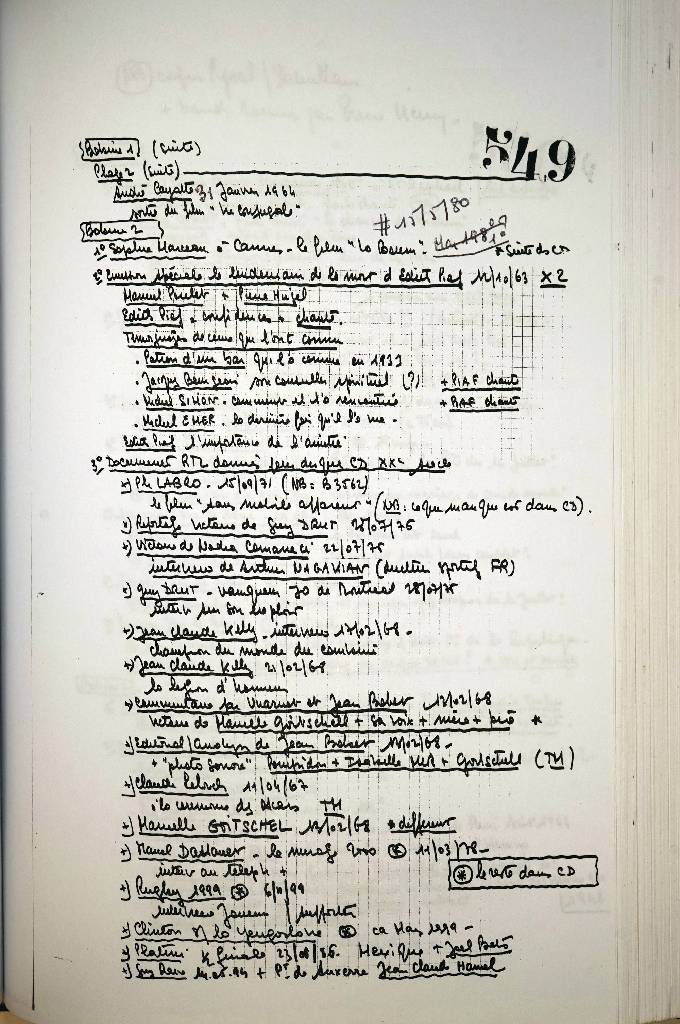 549
Bobine 1 (suite)
Plage 2 (suite)
André Cayatte 31 Janvier 1964
sortie du film "Vie conjugale"
# 15/5/80
Bobine 2
1° Sophie Marceau à Cannes - le film "La Boum" - * Suite du CD
2° Emission spéciale le lendemain de la mort d'Edith Piaf 12/10/63 X2
+ Pierre Hiégel
Edith Piaf - confidences + chante.
Temoignages de ceux qui l'ont connu
. Patron d'un bar qui l'a connue en 1933
. Jacques Bourgeat son conseiller spirituel (?) + PIAF chante
. Michel SIMON - comment il l'a rencontrée + PIAF chante
. Michel EMER - la dernière fois qu'il l'a vue -
Edith Piaf l'importance de l'amitié
3° Document RTL donnés par disque CD
+) Ph LABRO - 15/09/71 (NB: B3562)
le film "sans mobile apparent" (NB: ce que manque est dans CD).
+) Reportage victoire de Guy DRUT 28/07/76
+) Victoire de Nadia Comaneci 22/07/76
interview de Arthur MAGAKIAN (directeur sportif FR)
+) Guy DRUT - vainqueur JO de Montréal 28/07/76
interv sur son exploit
+) Jean Claude Killy - interview 17/02/68 -
champion du monde du combiné
+) Jean Claude Killy 21/02/68
la légion d'honneur
+) Commentaire par et Jean Bobet 13/02/68
victoire de Marielle Goitschell + sa voix + mère + père *
+) Editorial/analyse de Jean Bobet 14/02/68 -
+ "photo sonore" Pompidou + Isabelle MIR + Goitschell (TM)
+) Claude Lelouch 11/04/67
à la cérémonie des Oscars TM
+) Marielle GOITSCHEL 13/02/68 * différent
+) Marcel Dassault - le mirage 2000 (*) 11/03/78 -
interv au téléph +
(*) le reste dans CD
+) Rugby 1999 (*) 6/11/99
interview joueurs / supporter
+) Clinton & la Yougoslavie (*) ca Mars 1999 -
+) Platini 1/4 finale 23/06/86. Mexique + Joël Bats
+) Guy Roux 14.05.94 + Pt de Auxerre Jean Claude Hamel